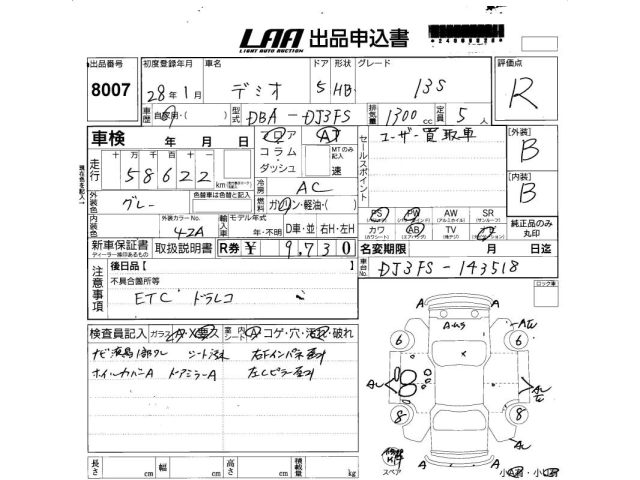 LAA 出品申込書
LIGHT AUTO AUCTION
出品番号 初度登録年月 車名 ドア 形状 グレード 評価点
8007 28年1月 デミオ 5 HB 13S R
車歴 自家用・( ) 型式 DBA-DJ3FS 排気量 1300cc 定員 5人
車検 年 月 日
コラム・
ダッシュ
MTのみ記入
速
セールスポイント
ユーザー買取車
[外装]
B
走行 十万千百十
58622 km
現在色を記入
冷房 AC
[内装]
B
外装色 グレー
色替車は色替と記入
燃料 ガソリン・軽油・( )
PS PW AW SR
(パワーステアリング) (パワーウインド) (アルミホイル) (サンルーフ)
内装色
外装カラーNo.
42A
輸入車
モデル年式
年・不明
D車・並 右H・左H
カワ AB TV ナビ
(カワシート) (エアバック) (純テレビ)
純正品のみ丸印
新車保証書
ディーラー捺印あるもの
取扱説明書 R券 ¥ 9,730 名変期限 月 日迄
注意事項
後日品 [ ]
不具合箇所等
ETC ドラレコ
車台No. DJ3FS-143518
ロック車
検査員記入 ガラス A・X 要入 室内シート A コゲ・穴・汚れ・破れ
シート汚れ
ホイルカバーA ドアミラーA
6 6
8 8
長さ cm 幅 cm 高さ cm 積載量 kg
スペア
小 ・小